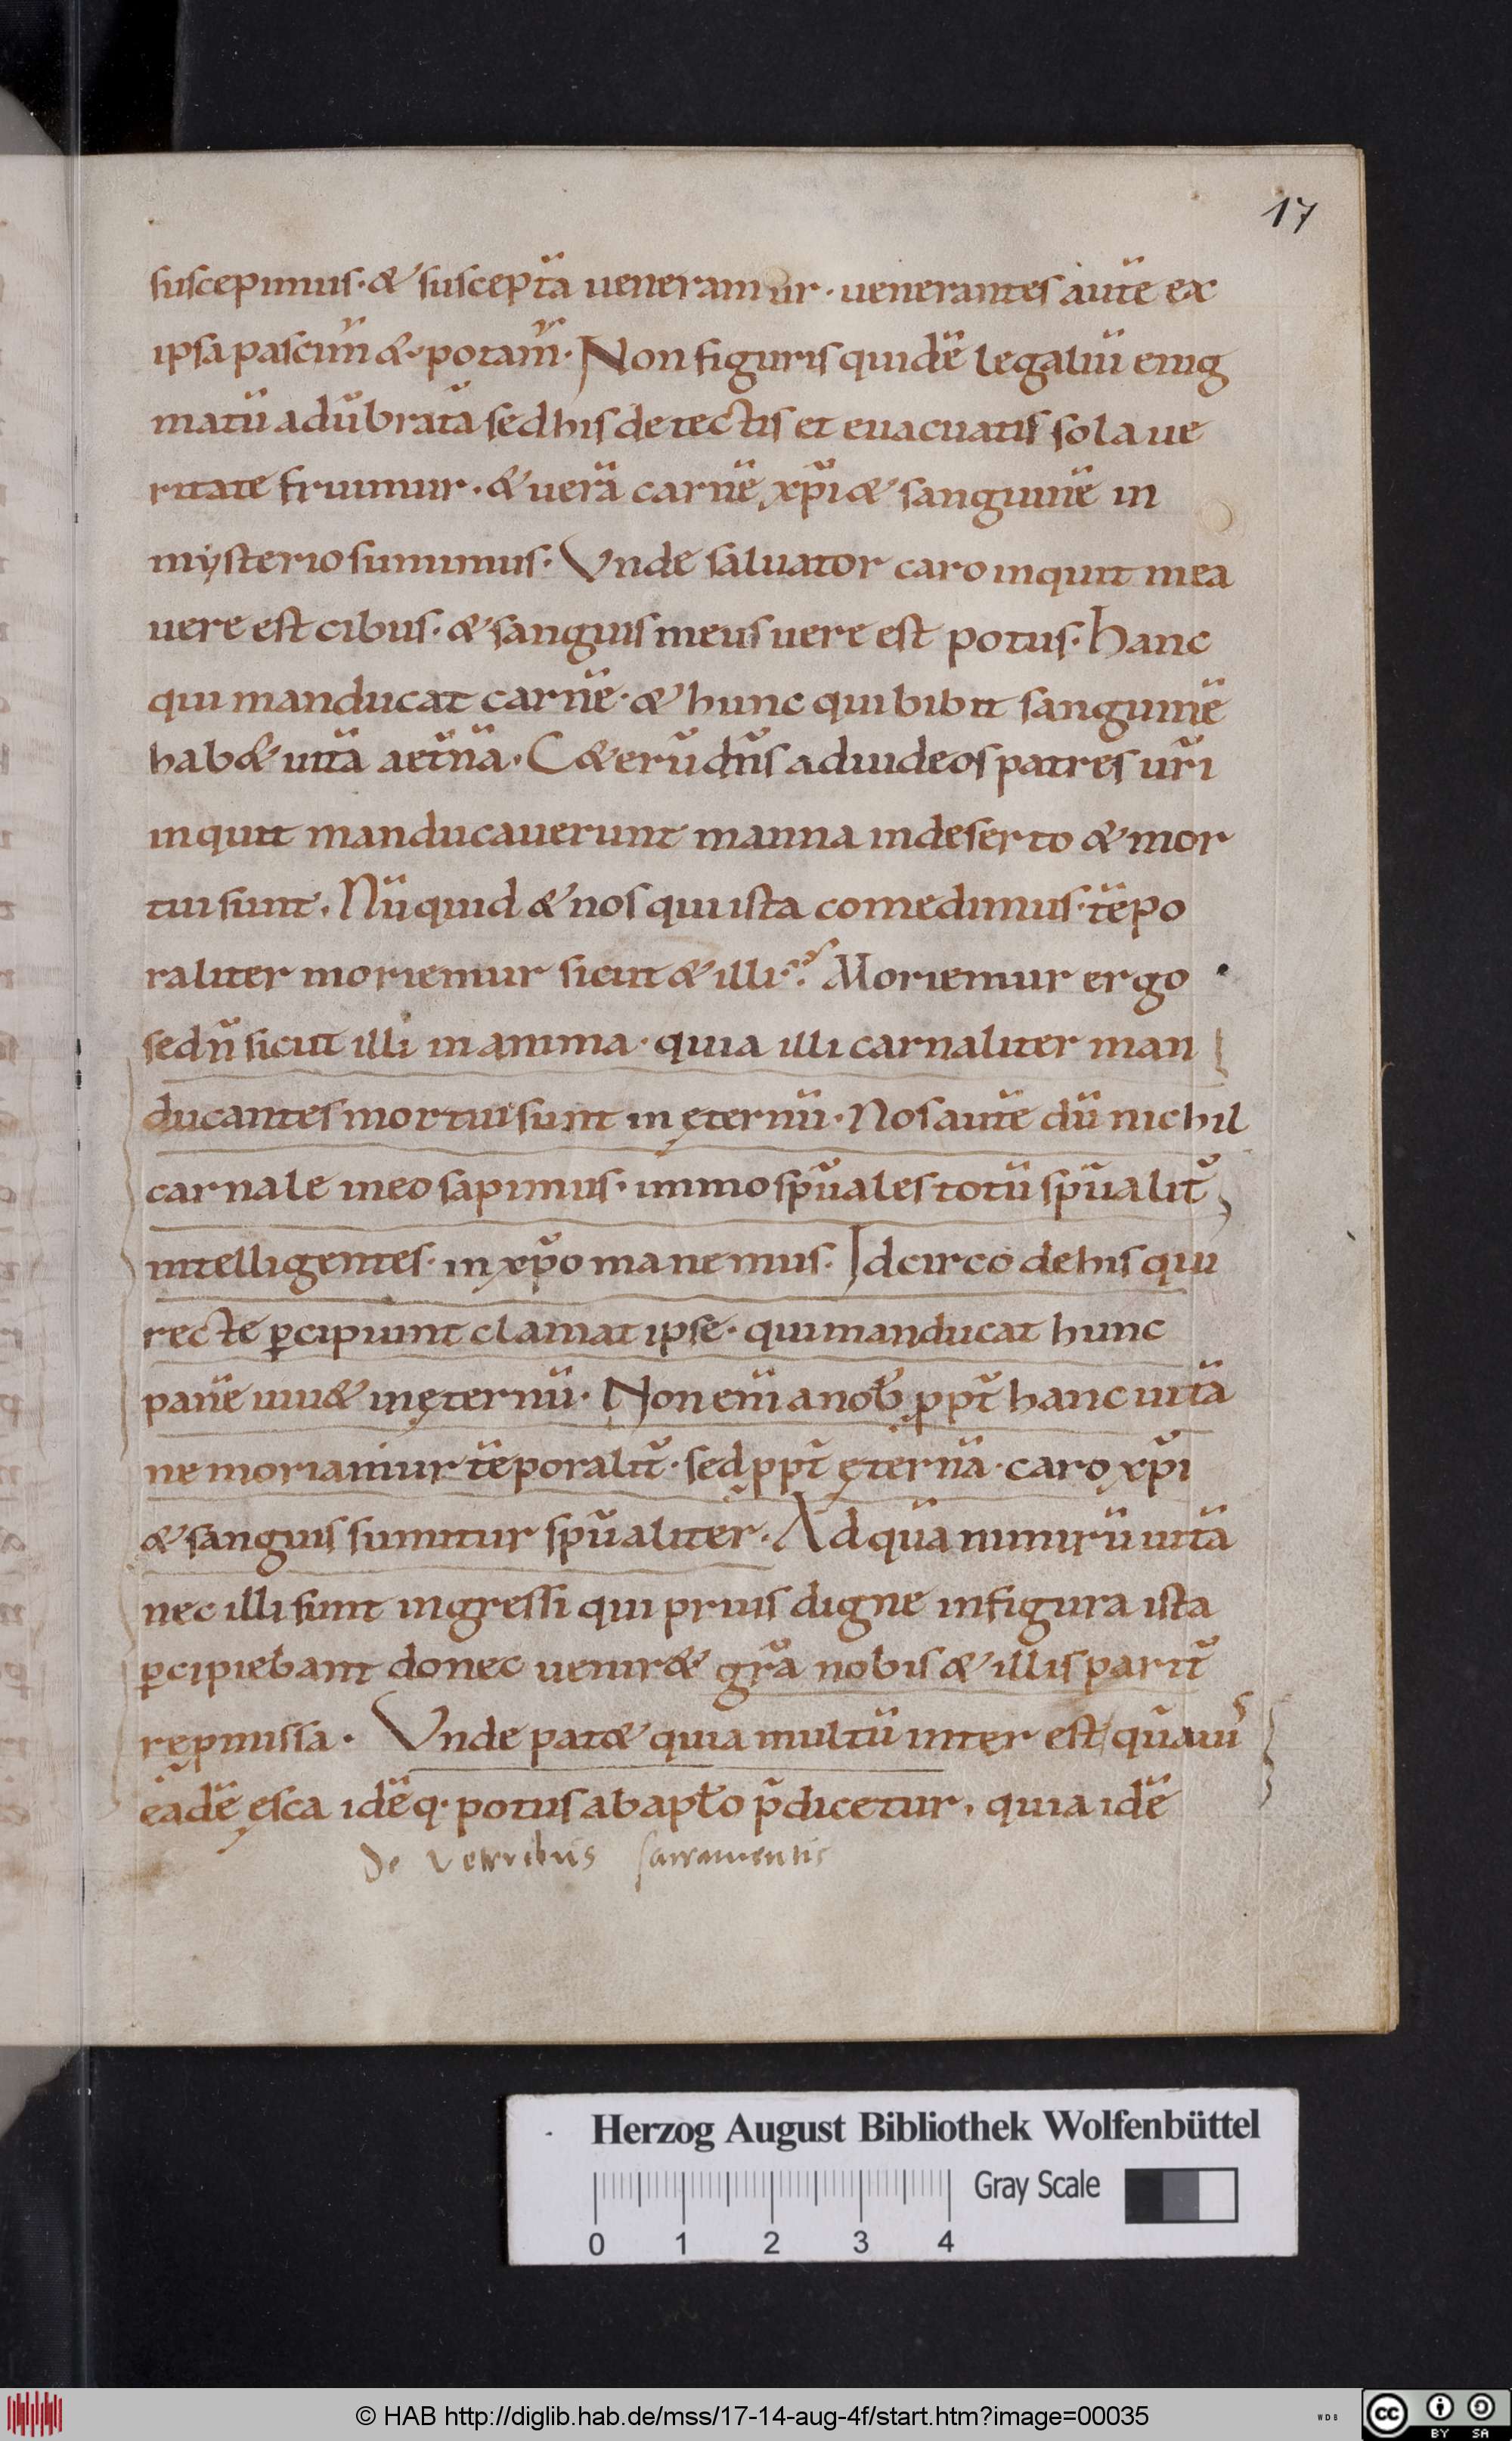 17
suscepimus· & susceptā ueneramur· uenerantes autē ex
ipsa pascim̃ &· potam̃· Non figuris quidē legaliū enig
matū adūbratā sed his detectis et euacuatis sola ue
ritate fruimur· & uerā carnē xp̄i & sanguinē in
mysterio sumimus· Vnde saluator caro inquit mea
uere est cibus· & sanguis meus uere est potus· hanc
qui manducat carnē· & hunc qui bibit sanguinē
hab& uitā aet̄nā· C&erū dn̄s ad iudeos patres ur̄i
inquit manducauerunt manna in deserto & mor
tui sunt· Nūquid & nos qui ista comedimus· tēpo
raliter moriemur sicut & illi? Moriemur ergo
sed n̄ sicut illi in anima· quia illi carnaliter man
ducantes mortui sunt in ęternū· Nos autē dū nichil
carnale in eo sapimus· immo sp̄uales totū sp̄ualit̄
intelligentes· in xp̄o manemus· Idcirco de his qui
recte ꝑcipiunt clamat ipse· qui manducat hunc
panē uiu& in ęternū· Non eni̅ a nob̄ ꝓpt̄ hanc uitā
ne moriamur tēporalit̄· sed ꝓpt̄ ęternā· caro xp̄i
& sanguis sumitur sp̄ualiter· Ad quā nimirū uitā
nec illi sunt ingressi qui prius digne in figura ista
ꝑcipiebant donec uenir& gr̄a nobis & illis parit̄
repmissa· Vnde pat& quia multū inter est quāuis
eādē esca idēq· potus ab apt̄o p̄dicetur, quia idē
De veteribus sacramentis
Herzog August Bibliothek Wolfenbüttel
Gray Scale
0 1 2 3 4
© HAB http://diglib.hab.de/mss/17-14-aug-4f/start.htm?image=00035
WDB
cc BY SA